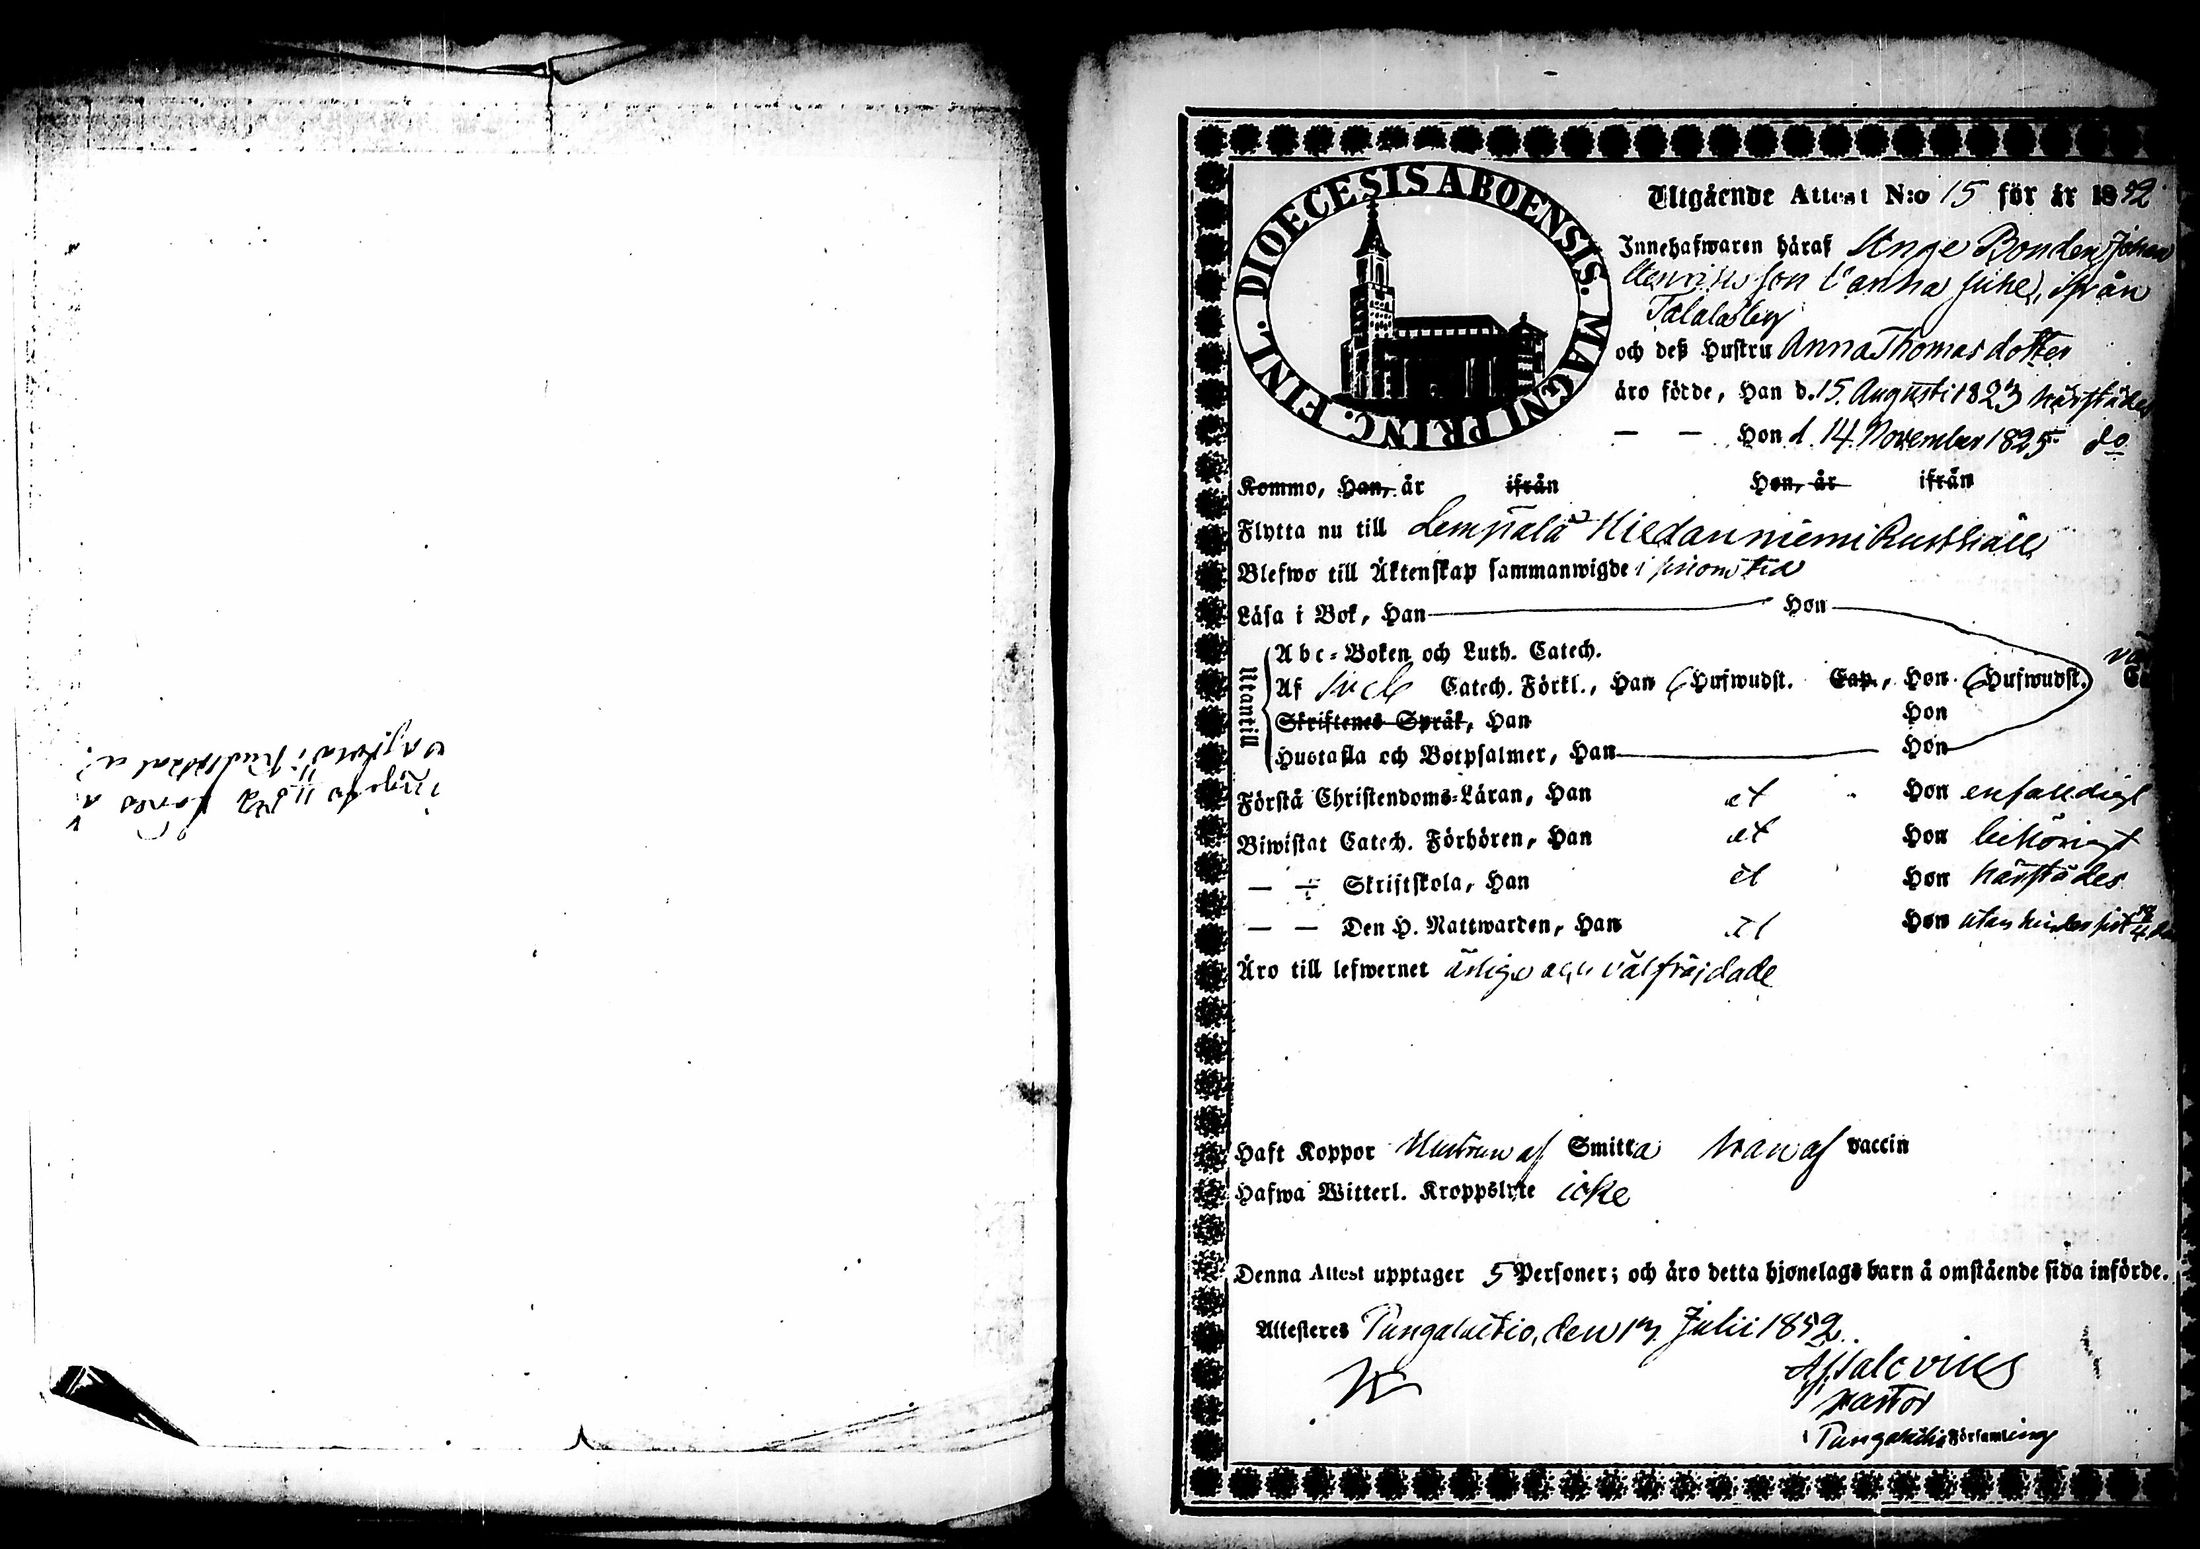 DIOECESIS ABOENSIS. MAGNI PRINC. FINL.
Utgående Attest N:o 15 för år 1852
Innehafwaren häraf Unge Bonden Johan
Henriksson Canna ifrån
och deß Hustru Anna Thomasdotter
äro födde, Han d. 15. Augusti 1823 härstädes
— — Hon d. 14. November 1825 do
Kommo, Han, år ifrån Hon, år ifrån
Flytta nu till Lempälä Hiedanniemi Rusthåll
Blefwo till Äktenskap sammanwigde i tid
Läsa i Bok, Han Hon
Utantill
Abc-Boken och Luth. Catech.
Af Catech. Förkl., Han 6 Hufwudst. Cap., Hon 6 Hufwudst.
Skriftenes Språk, Han Hon
Hustafla och Botpsalmer, Han Hon
Förstå Christendoms-Läran, Han et Hon enfaldigt
Biwistat Catech. Förhören, Han et Hon behörigt
— — Skriftskola, Han et Hon härstädes
— — Den H. Nattwarden, Han et Hon utan hinder sist
Äro till lefwernet ärlige och välfräjdade
Haft Koppor Hustrun af Smitta Han af vaccin
Hafwa Witterl. Kroppslyte icke
Denna Attest upptager 5 Personer; och äro detta hjonelags barn å omstående sida införde.
Attesteres Pungalaitio, den 13 Julii 1852.
Pastor
i Pungalaitio Församling